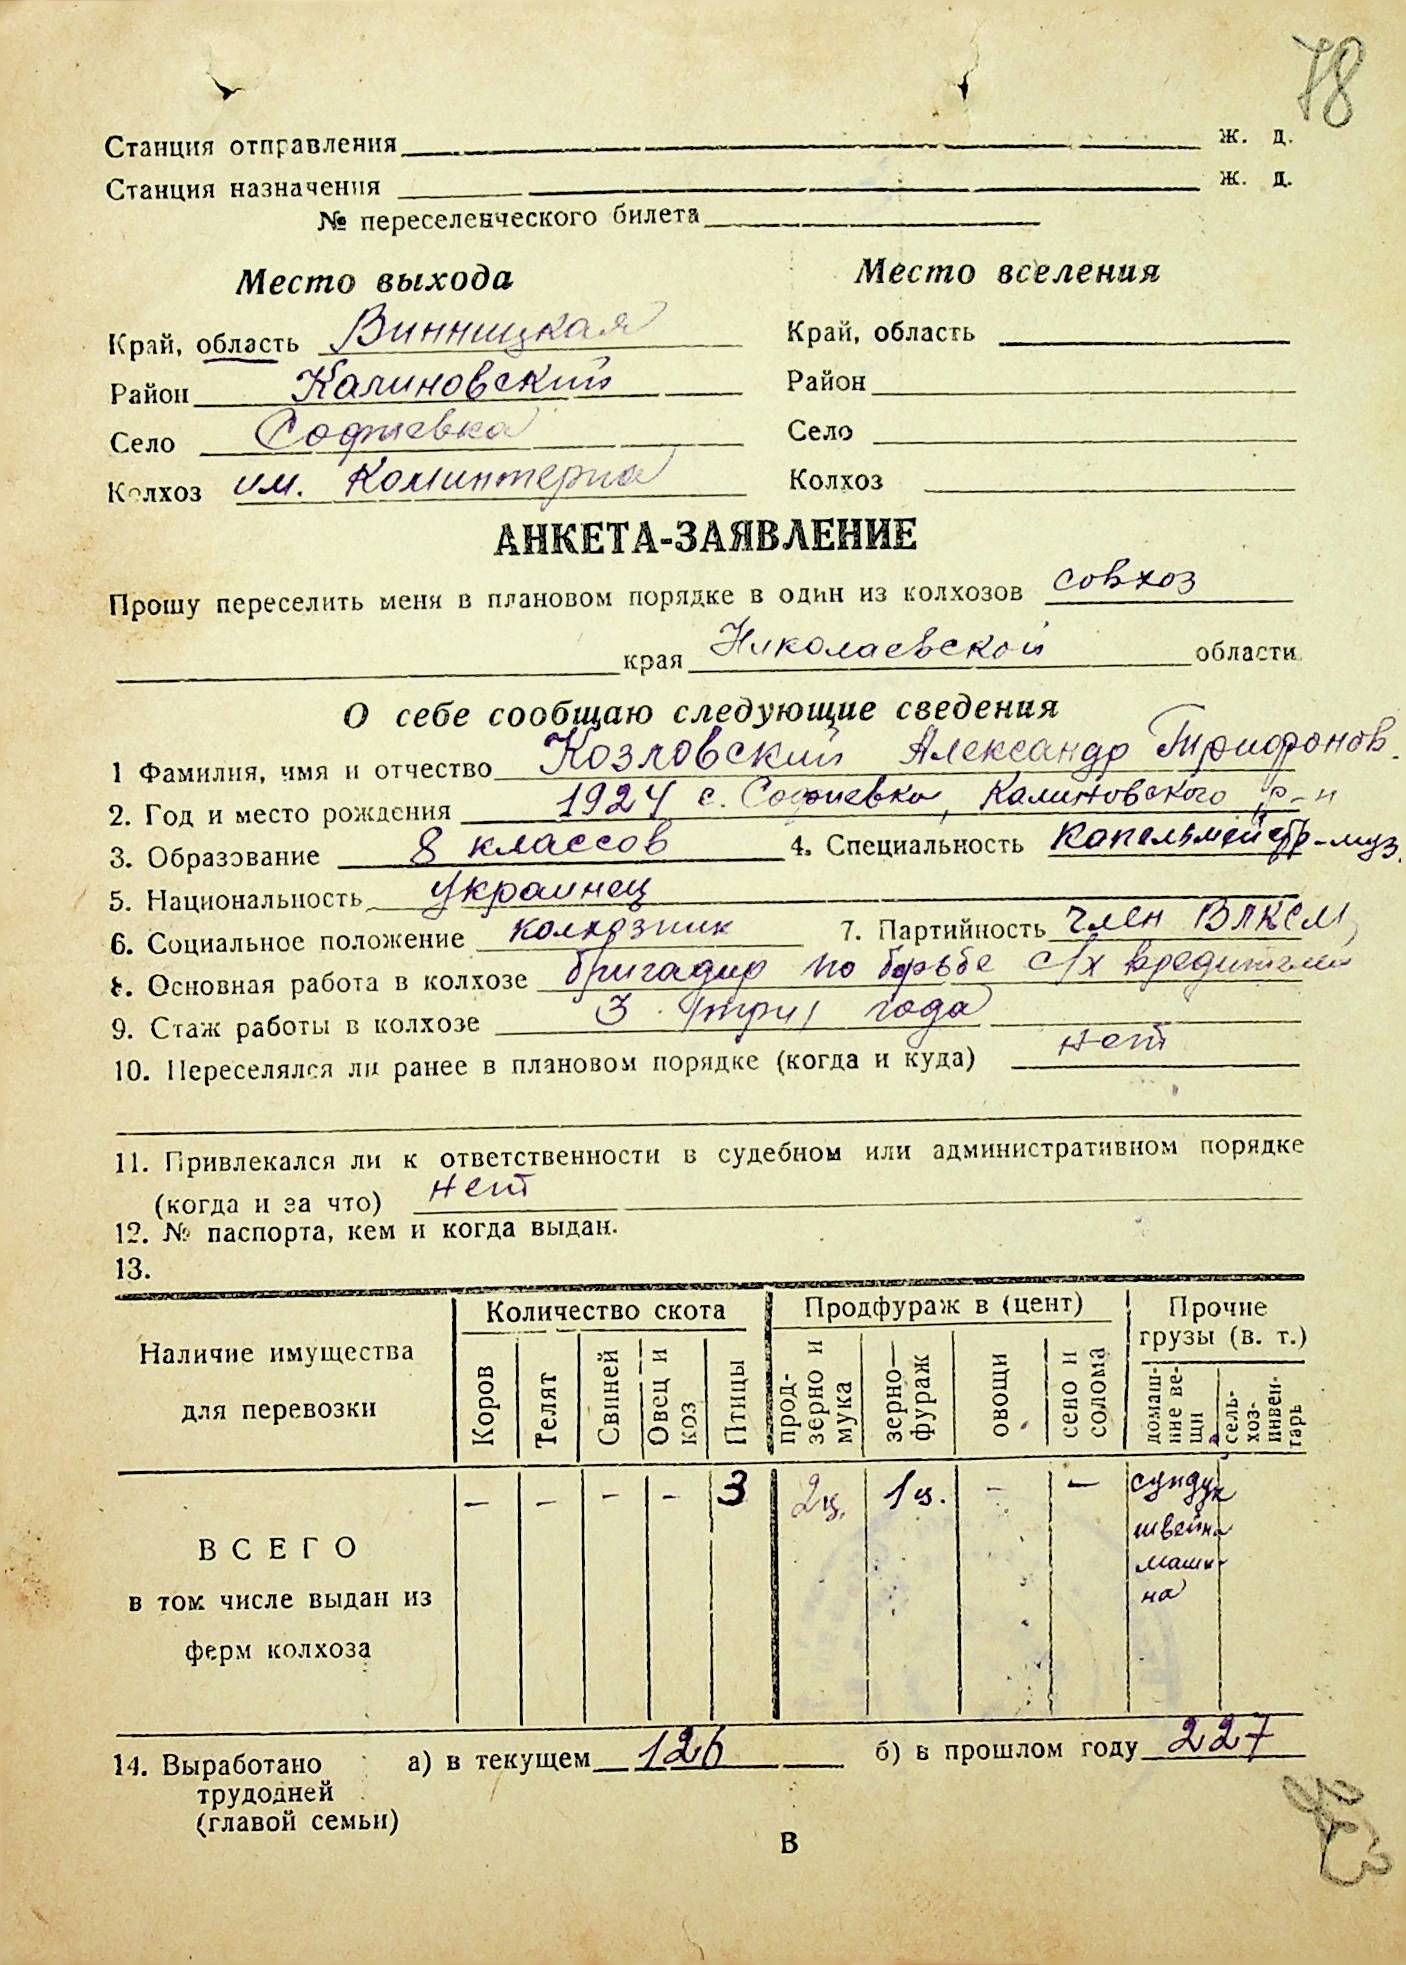 78
Станция отправления ж. д.
Станция назначения ж. д.
№ переселенческого билета
Место выхода
Край, область Винницкая
Район Калиновский
Село Софиевка
Колхоз им. Коминтерна
Место вселения
Край, область
Район
Село
Колхоз
АНКЕТА-ЗАЯВЛЕНИЕ
Прошу переселить меня в плановом порядке в один из колхозов совхоз
края Николаевской области
О себе сообщаю следующие сведения
1 Фамилия, имя и отчество Козловский Александр Трифонов.
2. Год и место рождения 1924 с. Софиевка, Калиновского р-н
3. Образование 8 классов 4. Специальность капельмейстр-муз.
5. Национальность украинец
6. Социальное положение колхозник 7. Партийность член ВЛКСМ
8. Основная работа в колхозе бригадир по борьбе с/х вредителей
9. Стаж работы в колхозе 3 (три) года
10. Переселялся ли ранее в плановом порядке (когда и куда) нет
11. Привлекался ли к ответственности в судебном или административном порядке
(когда и за что) нет
12. № паспорта, кем и когда выдан.
13.
Наличие имущества для перевозки
Количество скота
Продфураж в (цент)
Прочие грузы (в. т.)
Коров
Телят
Свиней
Овец и коз
Птицы
прод-зерно и мука
зерно—фураж
овощи
сено и солома
домаш-ние ве-щи
сель-хоз-инвен-тарь
ВСЕГО
в том числе выдан из
ферм колхоза
– – – – 3 2ц. 1ц. – – сундук
швейна
маши-
на
14. Выработано а) в текущем 126 б) в прошлом году 227
трудодней
(главой семьи)
В